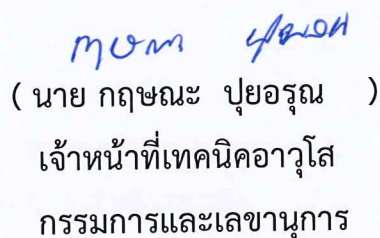 ( นาย กฤษณะ ปุยอรุณ )
เจ้าหน้าที่เทคนิคอาวุโส
กรรมการและเลขานุการ